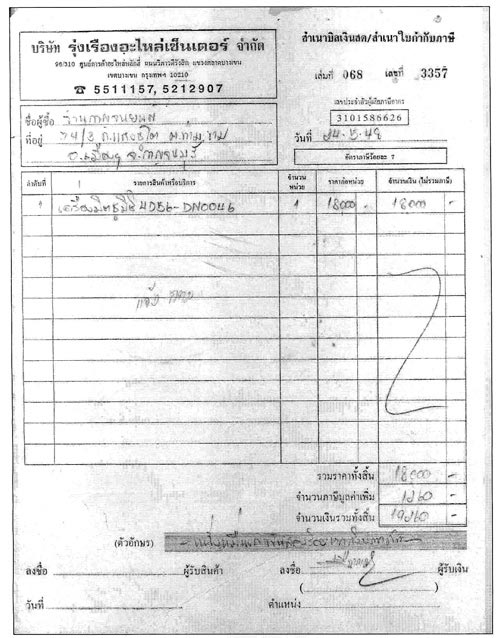 บริษัท รุ่งเรืองอะไหล่เซ็นเตอร์ จำกัด
เขตบางเขน กรุงเทพฯ 10210
☎ 5511157, 5212907
สำเนาบิลเงินสด/สำเนาใบกำกับภาษี
เล่มที่ 068 เลขที่ 3357
เลขประจำตัวผู้เสียภาษีอากร
3101586626
วันที่ 24-5-49
อัตราภาษีร้อยละ 7
ชื่อผู้ซื้อ ร้านกาญจนยนต์
ที่อยู่ 74/3 ถ.แสงชูโต ต.ท่ามะขาม
อ.เมืองฯ จ.กาญจนบุรี
ลำดับที่ รายการสินค้าหรือบริการ จำนวนหน่วย ราคาต่อหน่วย จำนวนเงิน (ไม่รวมภาษี)
1 เครื่องมิตซูบิชิ 4D56-DN0046 1 18000 - 18000 -
รวมราคาทั้งสิ้น 18000 -
จำนวนภาษีมูลค่าเพิ่ม 1260 -
จำนวนเงินรวมทั้งสิ้น 19260 -
(ตัวอักษร)
ลงชื่อ ผู้รับสินค้า ลงชื่อ ผู้รับเงิน
วันที่ ตำแหน่ง